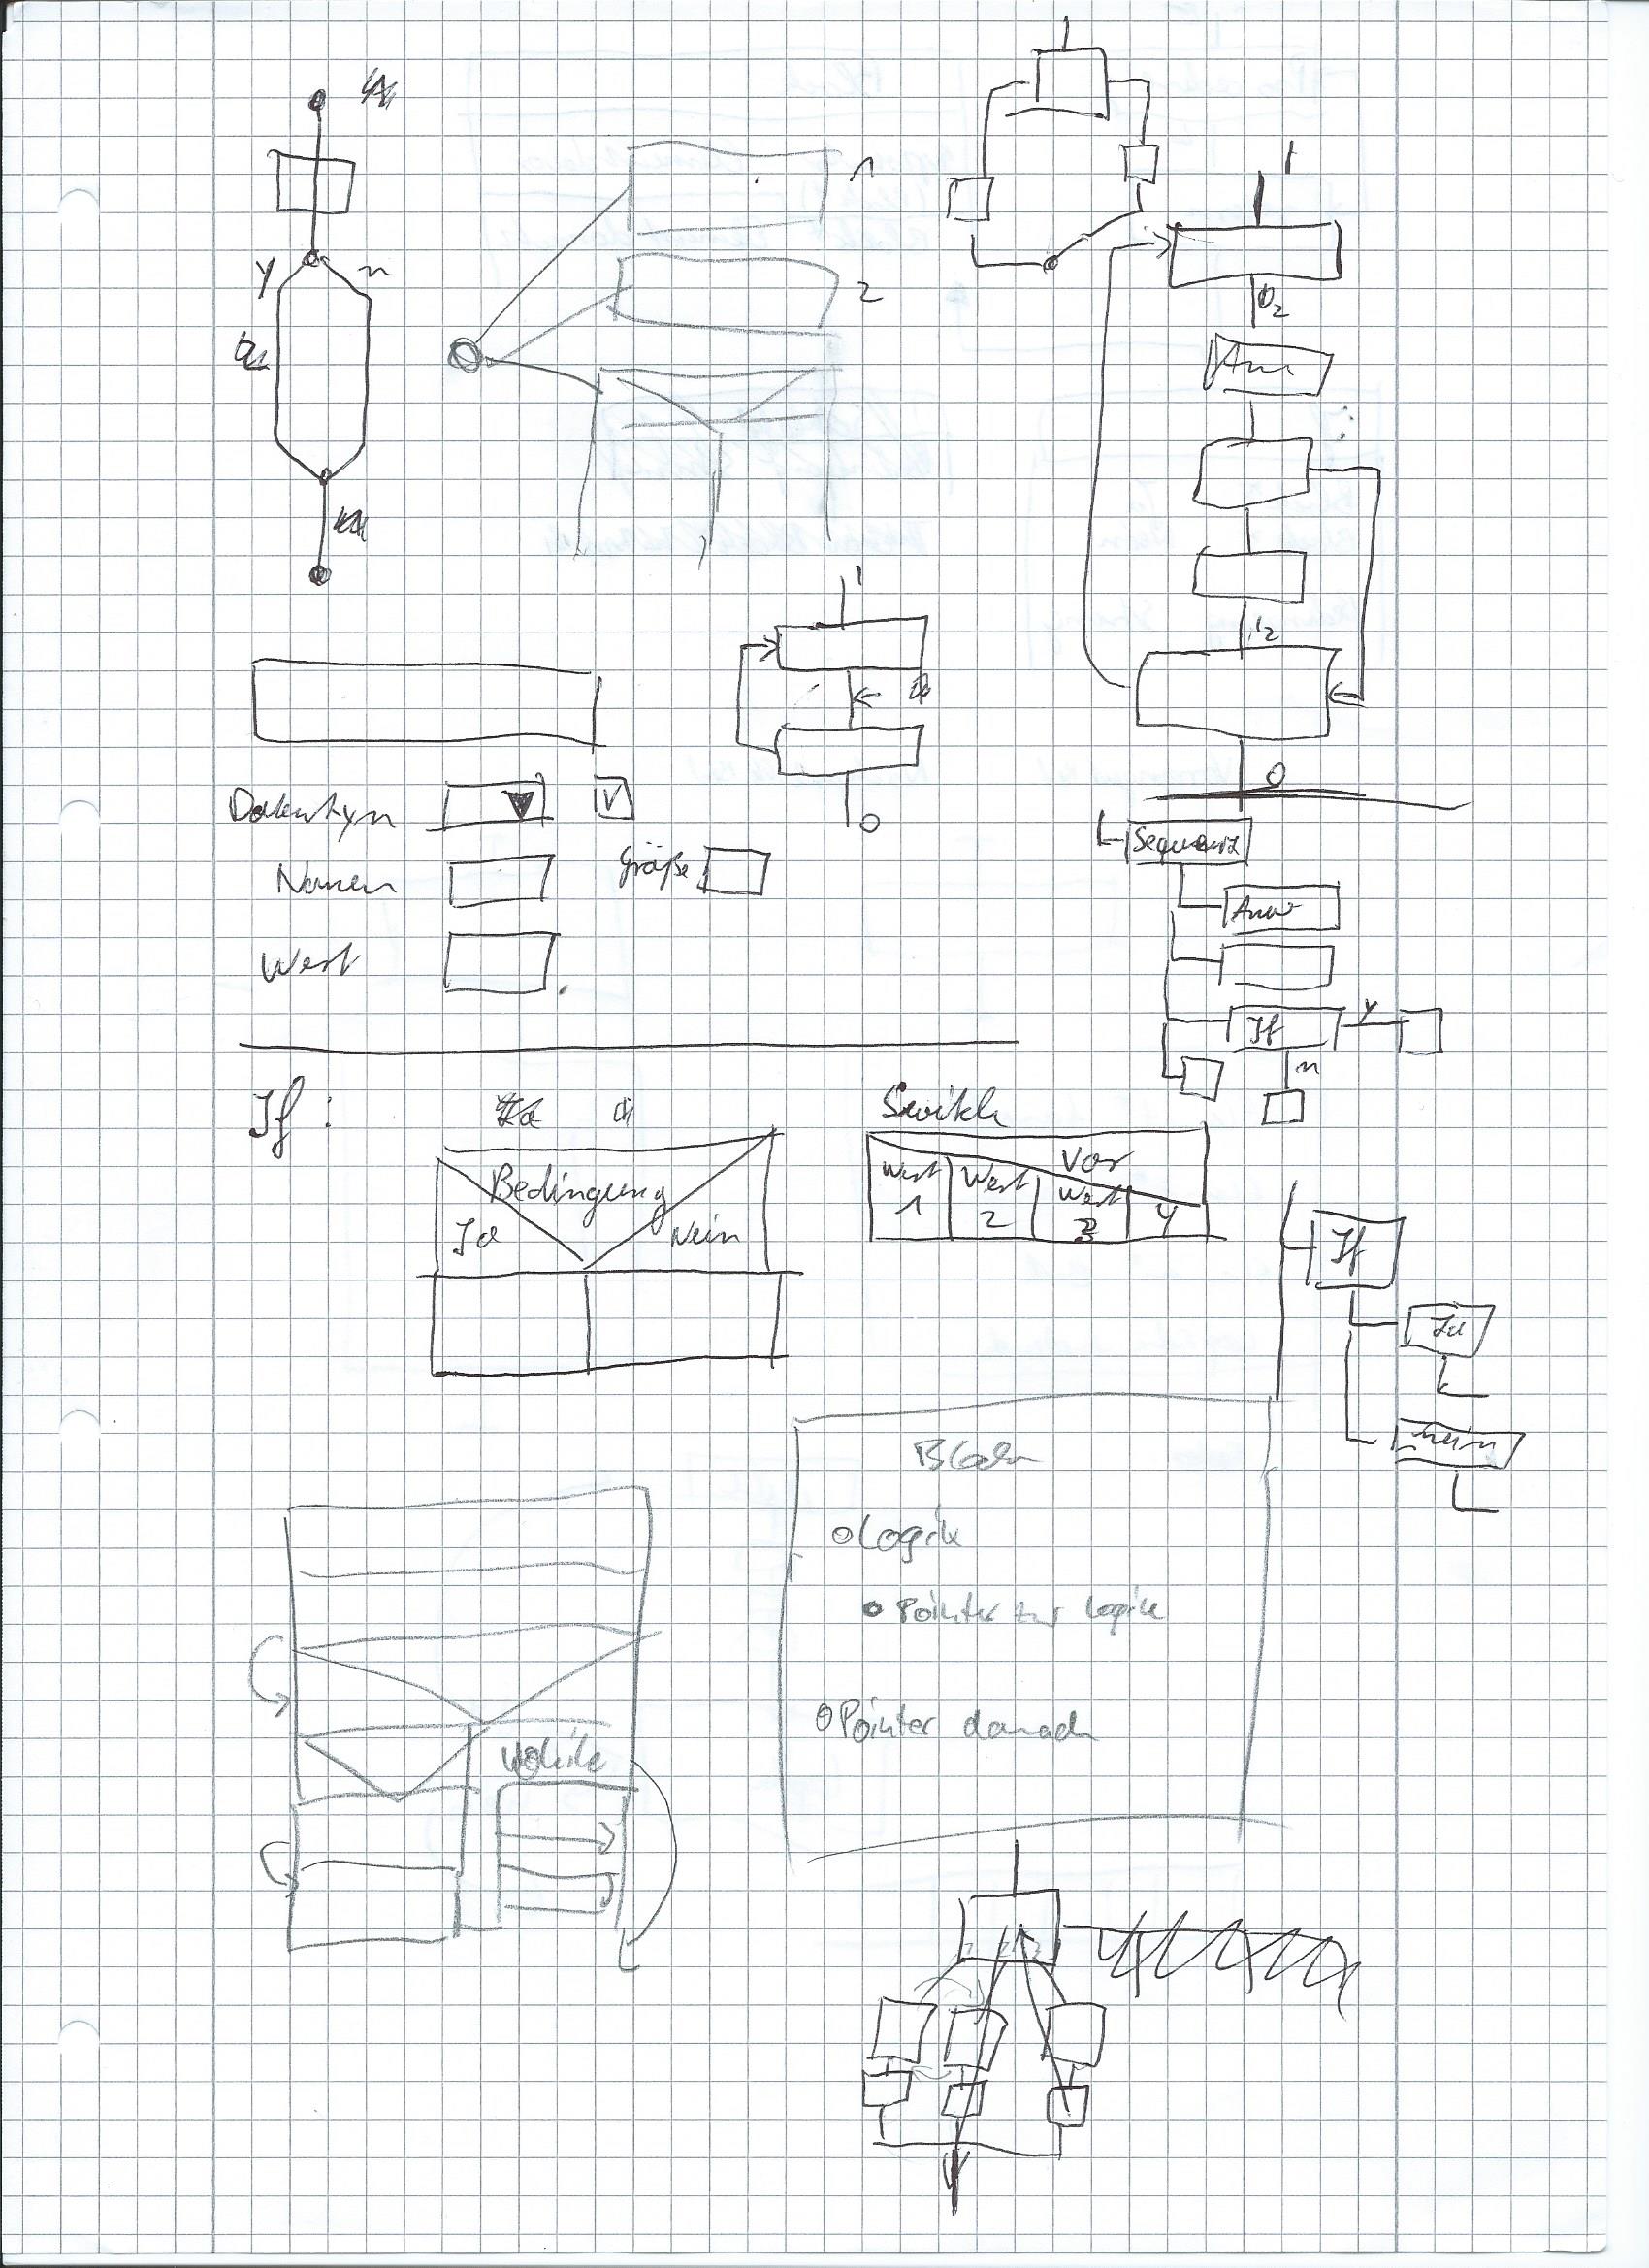 y n
1
2
1
O2
Anw
i2
O
1
O
Datentyp
Namen
Größe
Wert
Sequenz
Anw
If y
n
If :
Bedingung
Ja Nein
Switch
Var
Wert 1
Wert 2
Wert 3
4
If
Ja
nein
Block
Logik
Pointer zur Logik
Pointer danach
While